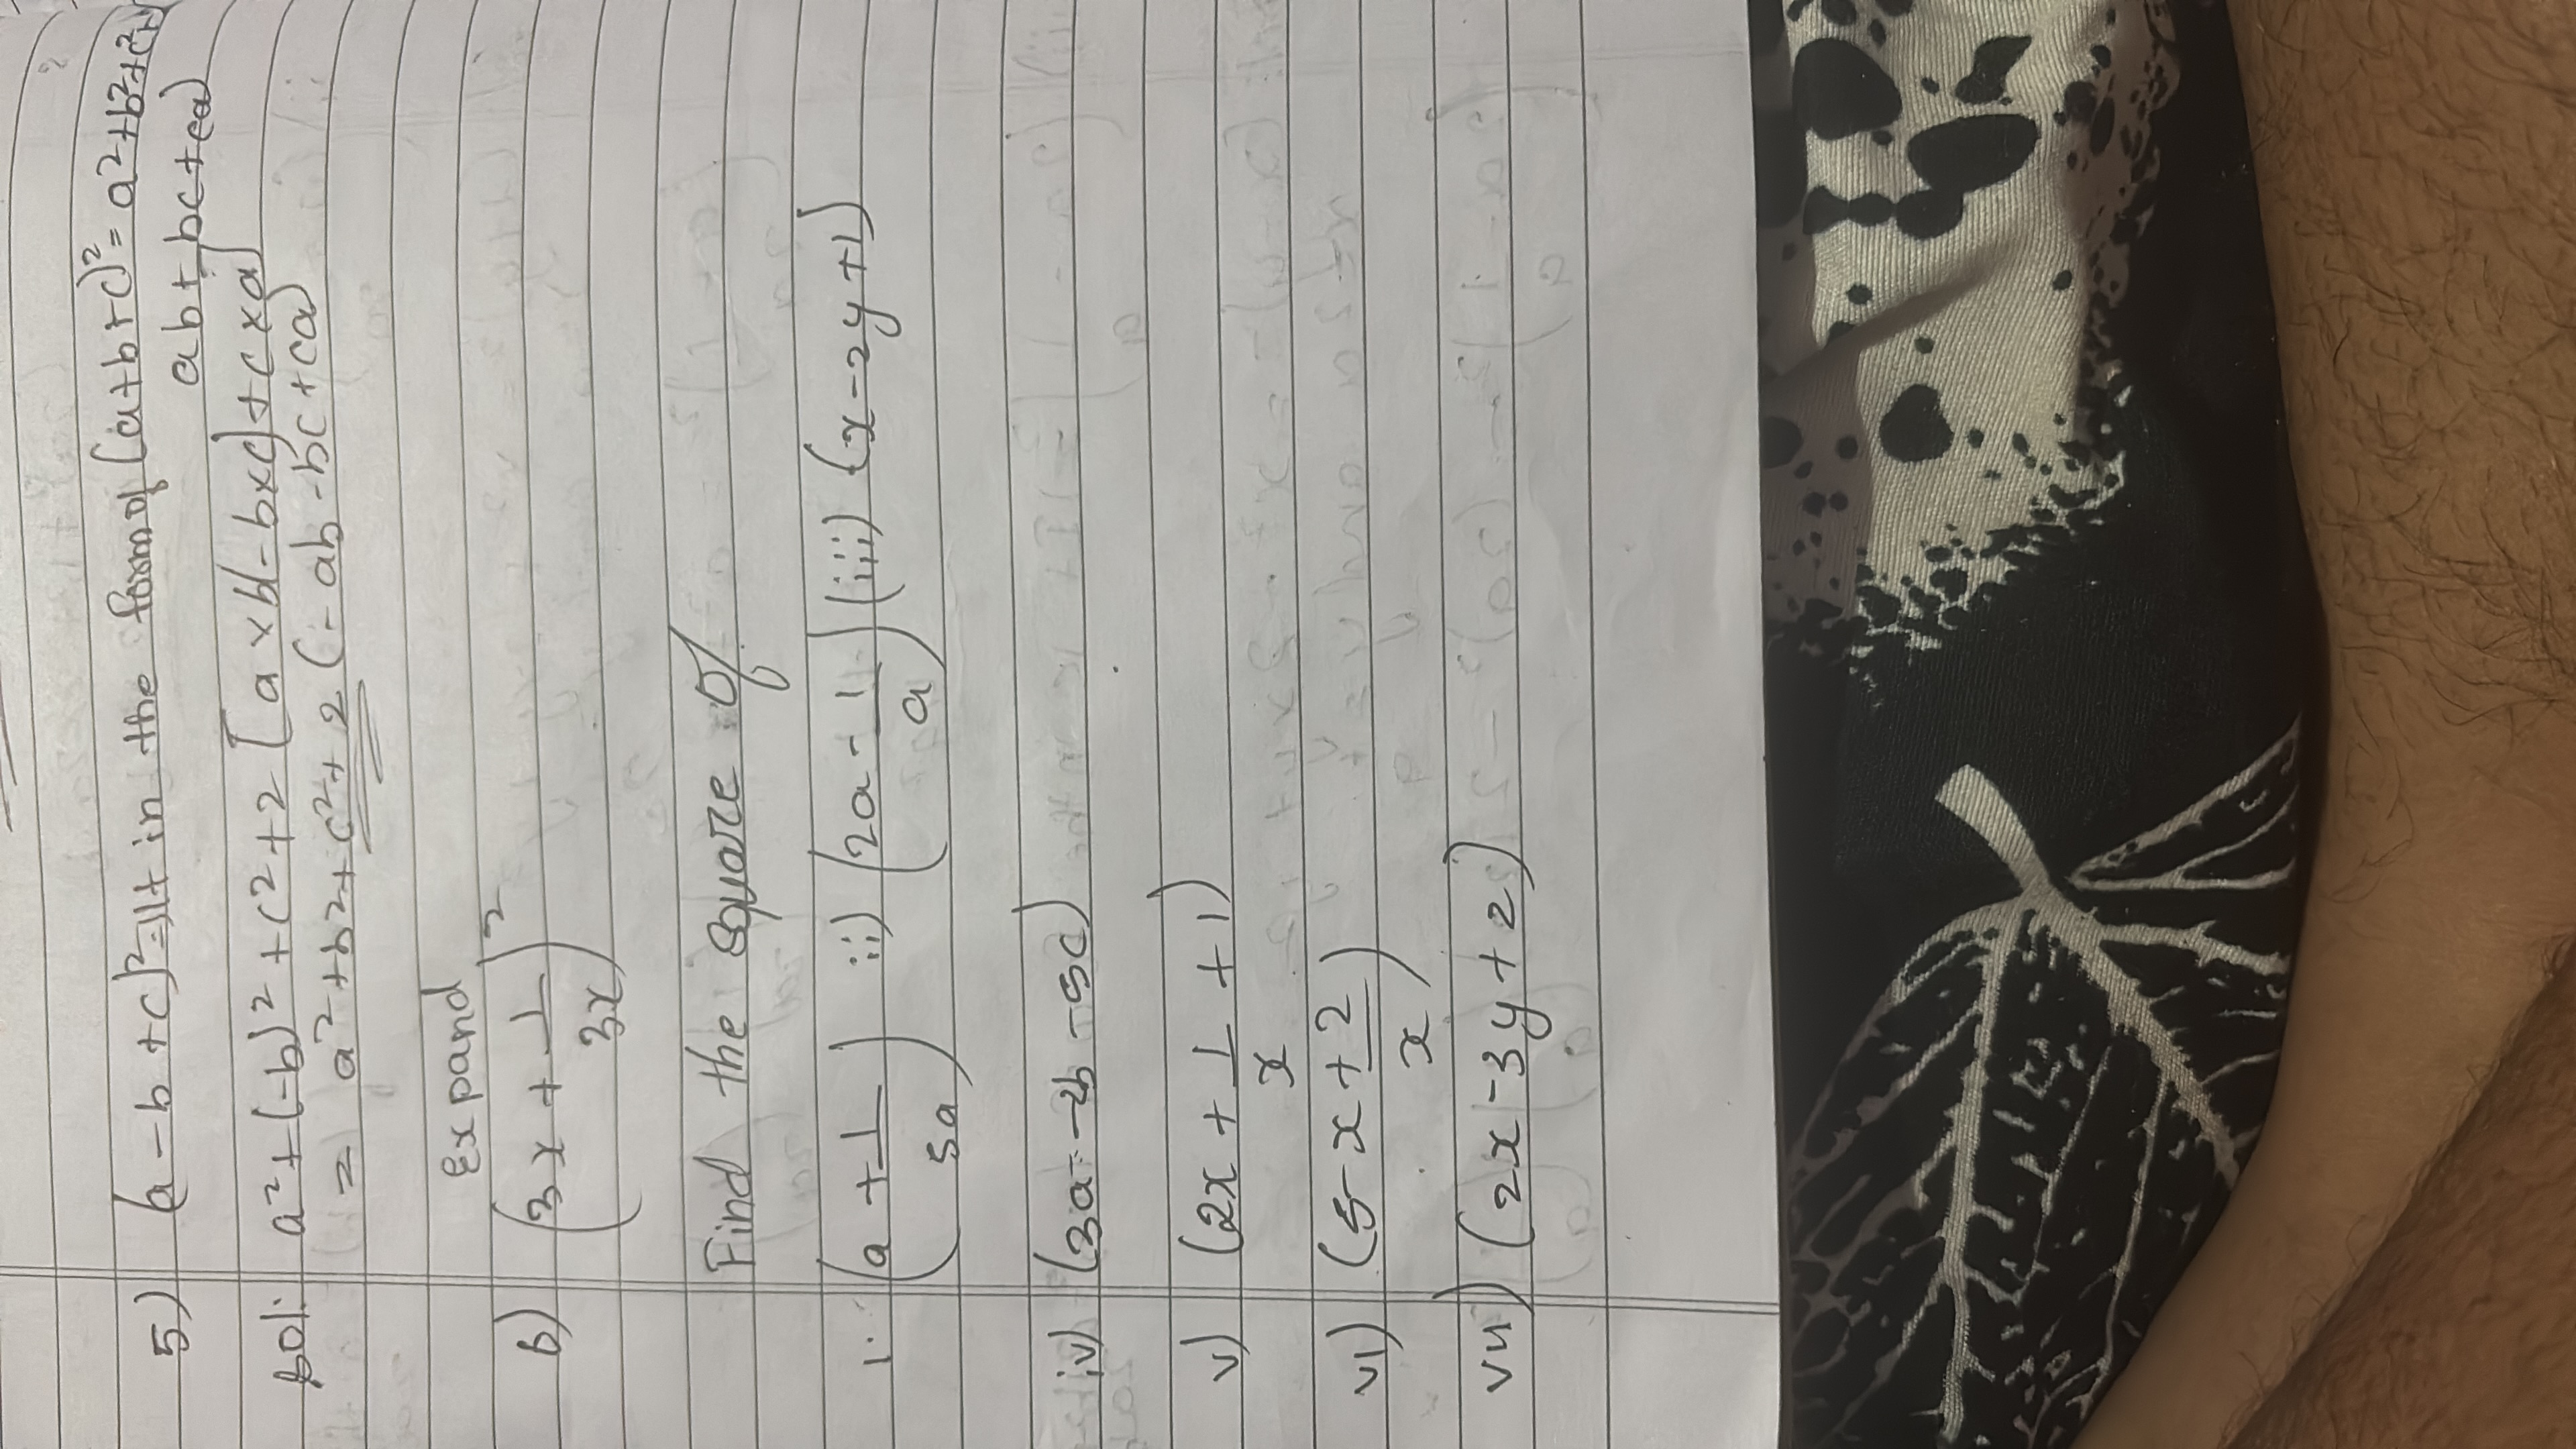 5) (a - b + c)² = It in the form of (a + b + c)² = a² + b² + c² +
ab + bc + ca)
Sol: a² + (-b)² + c² + 2 [a x b - b x c] + c x a]
= a² + b² + c² + 2 (- ab - bc + ca)
Expand
6) (3x + 1/3x)²
Find the square of
i. (a + 1/5a) ii) (2a - 1/a) (iii) (x - 2y + 1)
iv) (3a - 2b - 5c)
v) (2x + 1/x + 1)
vi) (5 - x + 2/x)
vii) (2x - 3y + z)